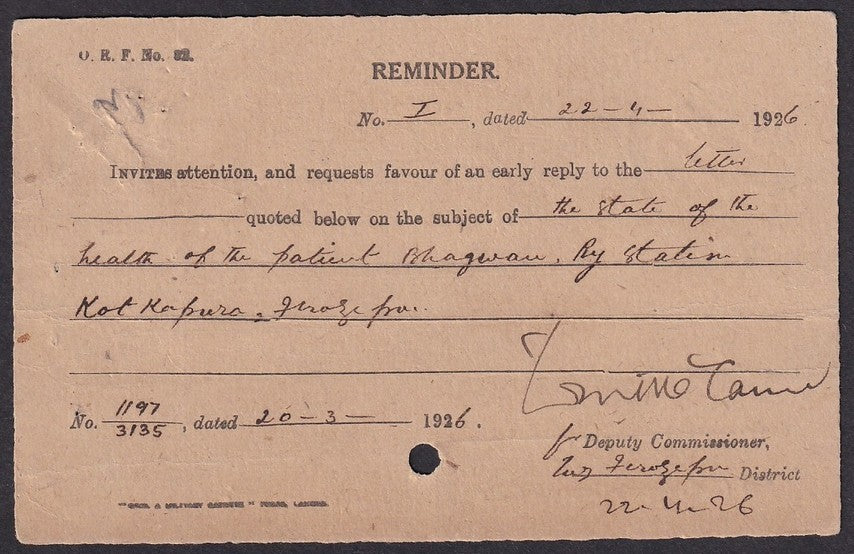 O. R. F. No. 32.
REMINDER.
No. I, dated 22-4- 1926.
INVITES attention, and requests favour of an early reply to the letter
quoted below on the subject of the state of the
health of the patient Bhagwan, Ry Station
Kot Kapura, Ferozepur.
No. 1197/3135, dated 20-3- 1926.
f Deputy Commissioner,
Ferozepur District
22-4-26
"CIVIL & MILITARY GAZETTE" PRESS, LAHORE.